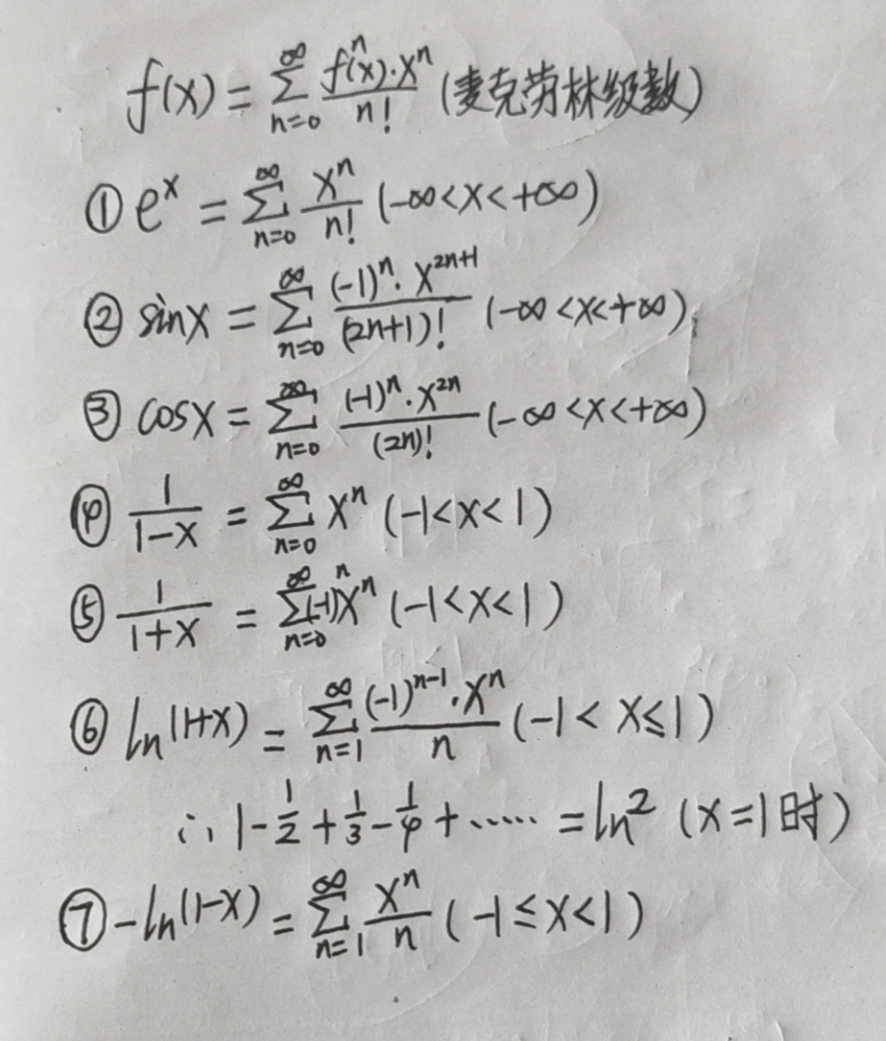 f(x) = ∑_{n=0}^{∞} \frac{f^{n}(x)·x^{n}}{n!} (麦克劳林级数)
① e^{x} = ∑_{n=0}^{∞} \frac{x^{n}}{n!} (-∞<x<+∞)
② sinx = ∑_{n=0}^{∞} \frac{(-1)^{n}·x^{2n+1}}{(2n+1)!} (-∞<x<+∞)
③ cosx = ∑_{n=0}^{∞} \frac{(-1)^{n}·x^{2n}}{(2n)!} (-∞<x<+∞)
④ \frac{1}{1-x} = ∑_{n=0}^{∞} x^{n} (-1<x<1)
⑤ \frac{1}{1+x} = ∑_{n=0}^{∞} (-1)^{n}x^{n} (-1<x<1)
⑥ ln(1+x) = ∑_{n=1}^{∞} \frac{(-1)^{n-1}·x^{n}}{n} (-1<x≤1)
∴ 1-\frac{1}{2}+\frac{1}{3}-\frac{1}{4}+…… = ln2 (x=1时)
⑦ -ln(1-x) = ∑_{n=1}^{∞} \frac{x^{n}}{n} (-1≤x<1)